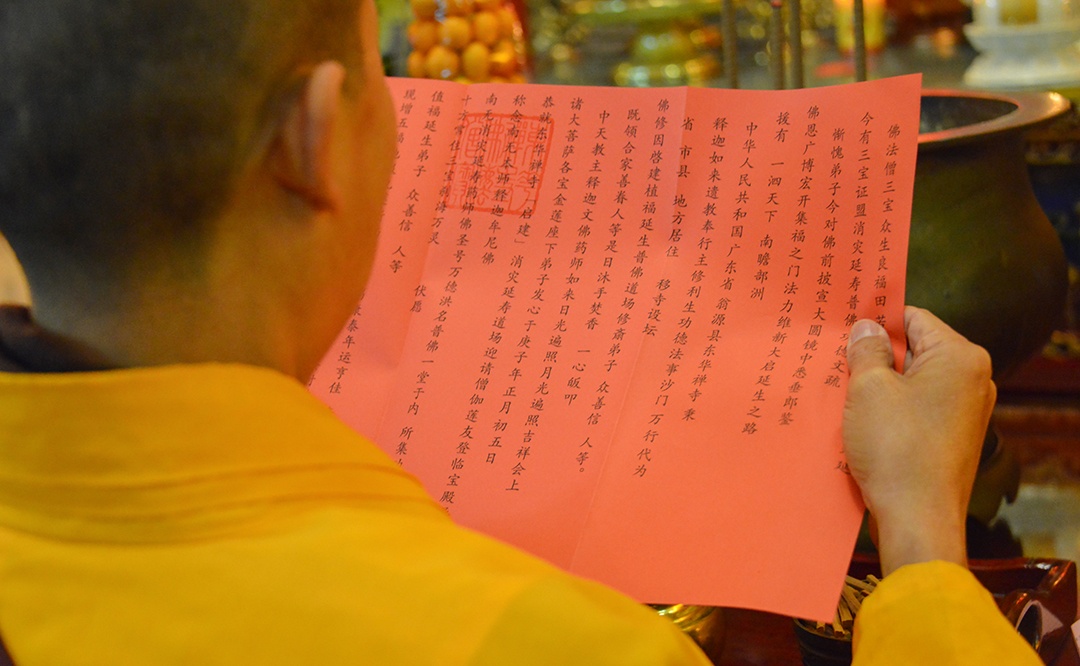 佛法僧三宝众生良福田
今有三宝证盟消灾延寿普佛 文疏
惭愧弟子今对佛前披宣大圆镜中悉垂郎鉴
佛恩广博宏开集福之门法力维新大启延生之路
拔有 一泗天下 南瞻部洲
中华人民共和国广东省 翁源县东华禅寺 秉
释迦如来遗教奉行主修利生功德法事沙门 万行代为
省 市县 地方居住 移寺设坛
佛修因启建植福延生普佛道场修斋弟子 众善信 人等。
既领合家善眷人等是日沐手焚香 一心皈叩
中天教主释迦文佛药师如来日光遍照月光遍照吉祥会上
诸大菩萨各宝金莲座下弟子发心于庚子年正月 初五日
恭就东华禅寺 启建」消灾延寿道场迎请僧伽莲友登临宝殿
称念南无本师释迦牟尼佛
南无消灾延寿药师佛圣号万德洪名普佛 一堂于内 所集
十方常住三宝 万灵
值福延生弟子 众善信 人等 伏愿
现增五福 泰年运亨佳